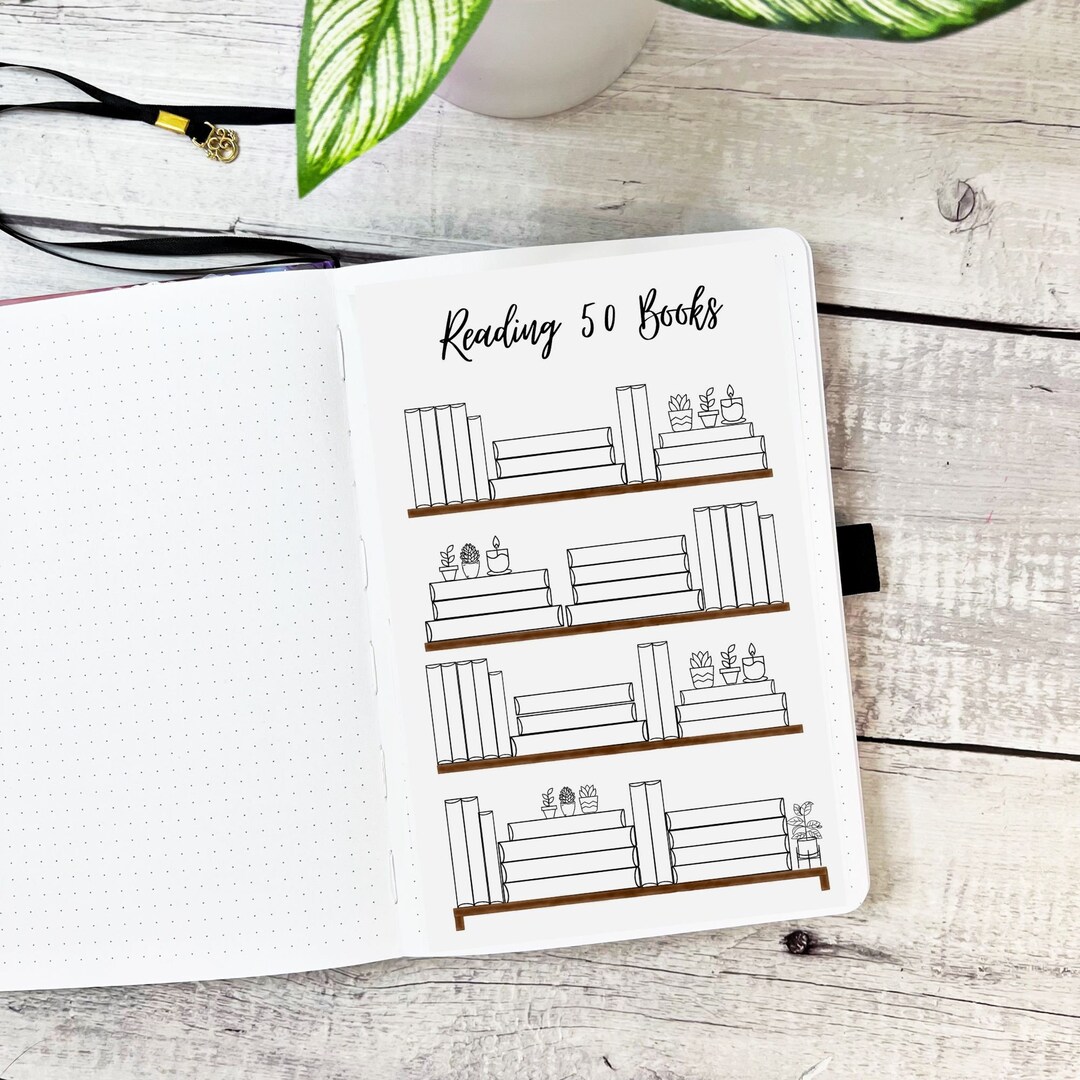 Reading 50 Books